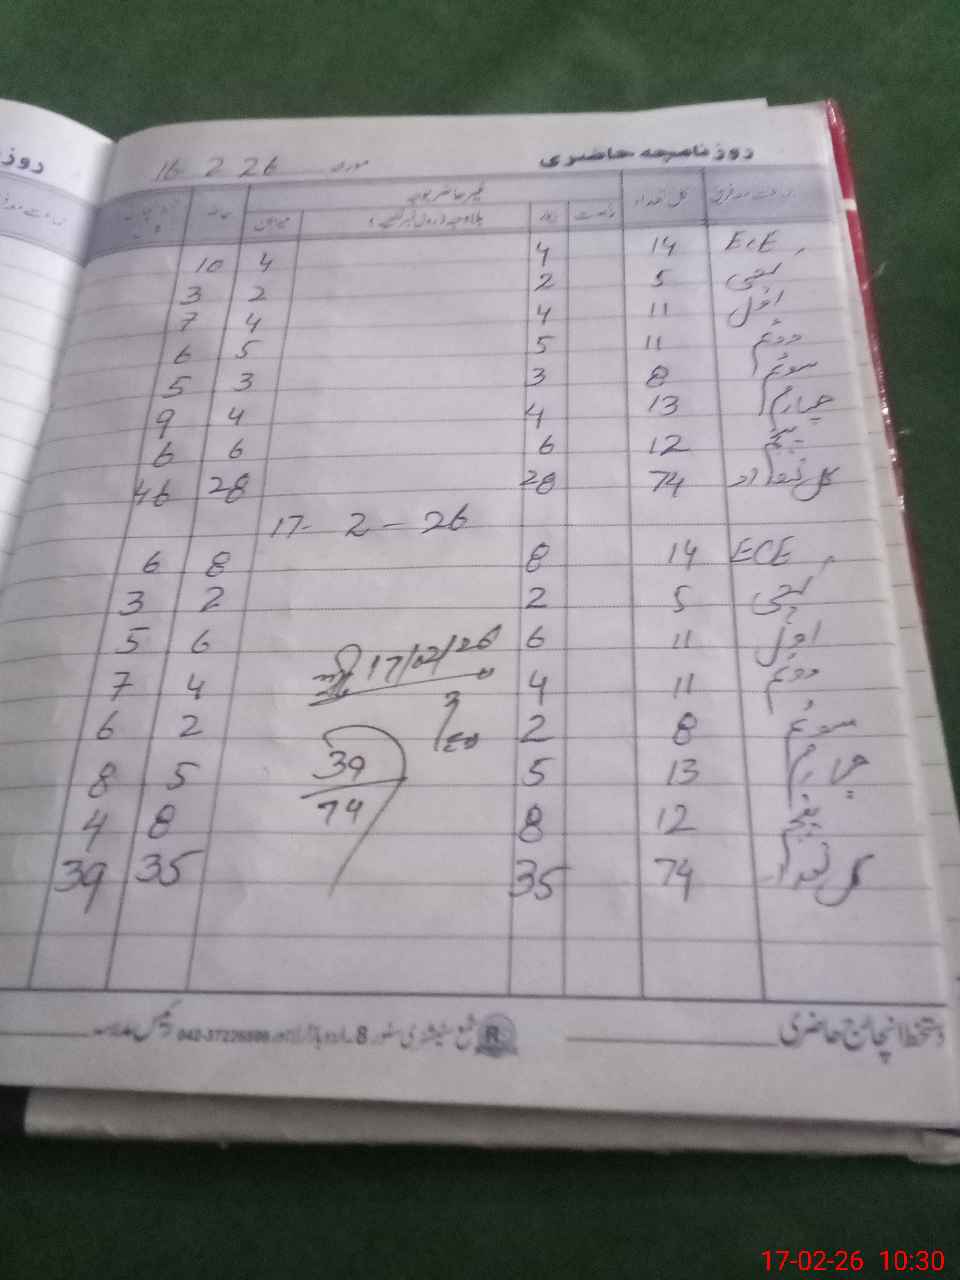 روزنامچہ حاضری
مورخہ 16 2 26
جماعت معہ فریق کل تعداد رخصت غیر حاضر میزان حاضر
ECE 14 4 4 10
کچی 5 2 2 3
اول 11 4 4 7
دوئم 11 5 5 6
سوئم 8 3 3 5
چہارم 13 4 4 9
پنجم 12 6 6 6
کل تعداد 74 28 28 46
17 - 2 - 26
ECE 14 8 8 6
کچی 5 2 2 3
اول 11 6 6 5
دوئم 11 4 4 7
17/02/26
سوئم 8 2 2 6
چہارم 13 5 39 5 8
پنجم 12 8 74 8 4
کل تعداد 74 35 35 39
دستخط انچارج حاضری
R
042-37226596
17-02-26 10:30